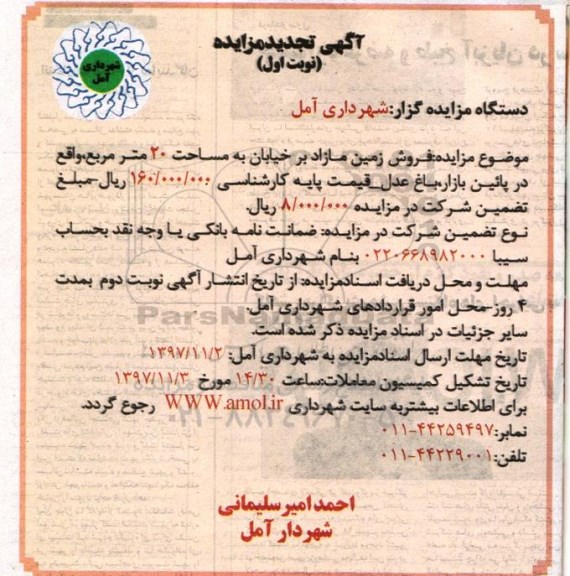 آگهی تجدیدمزایده
(نوبت اول)
شهرداری
آمل
دستگاه مزایده گزار:شهرداری آمل
موضوع مزایده:فروش زمین مازاد بر خیابان به مساحت ۲۰ متر مربع،واقع
در پائین بازار،باغ عدل_قیمت پایه کارشناسی ۱۶۰/۰۰۰/۰۰۰ ریال-مبلغ
تضمین شرکت در مزایده ۸/۰۰۰/۰۰۰ ریال.
نوع تضمین شرکت در مزایده: ضمانت نامه بانکی یا وجه نقد بحساب
سیبا ۰۲۲۰۶۶۸۹۸۲۰۰۰ بنام شهرداری آمل
مهلت و محل دریافت اسنادمزایده: از تاریخ انتشار آگهی نوبت دوم بمدت
۴ روز-محل امور قراردادهای شهرداری آمل.
سایر جزئیات در اسناد مزایده ذکر شده است.
تاریخ مهلت ارسال اسنادمزایده به شهرداری آمل: ۱۳۹۷/۱۱/۲
تاریخ تشکیل کمیسیون معاملات:ساعت ۱۴/۳۰ مورخ ۱۳۹۷/۱۱/۳
برای اطلاعات بیشتربه سایت شهرداری WWW.amol.ir رجوع گردد.
نمابر:۴۴۲۵۹۴۹۷-۰۱۱
تلفن:۴۴۲۲۹۰۰۱-۰۱۱
احمد امیرسلیمانی
شهردار آمل